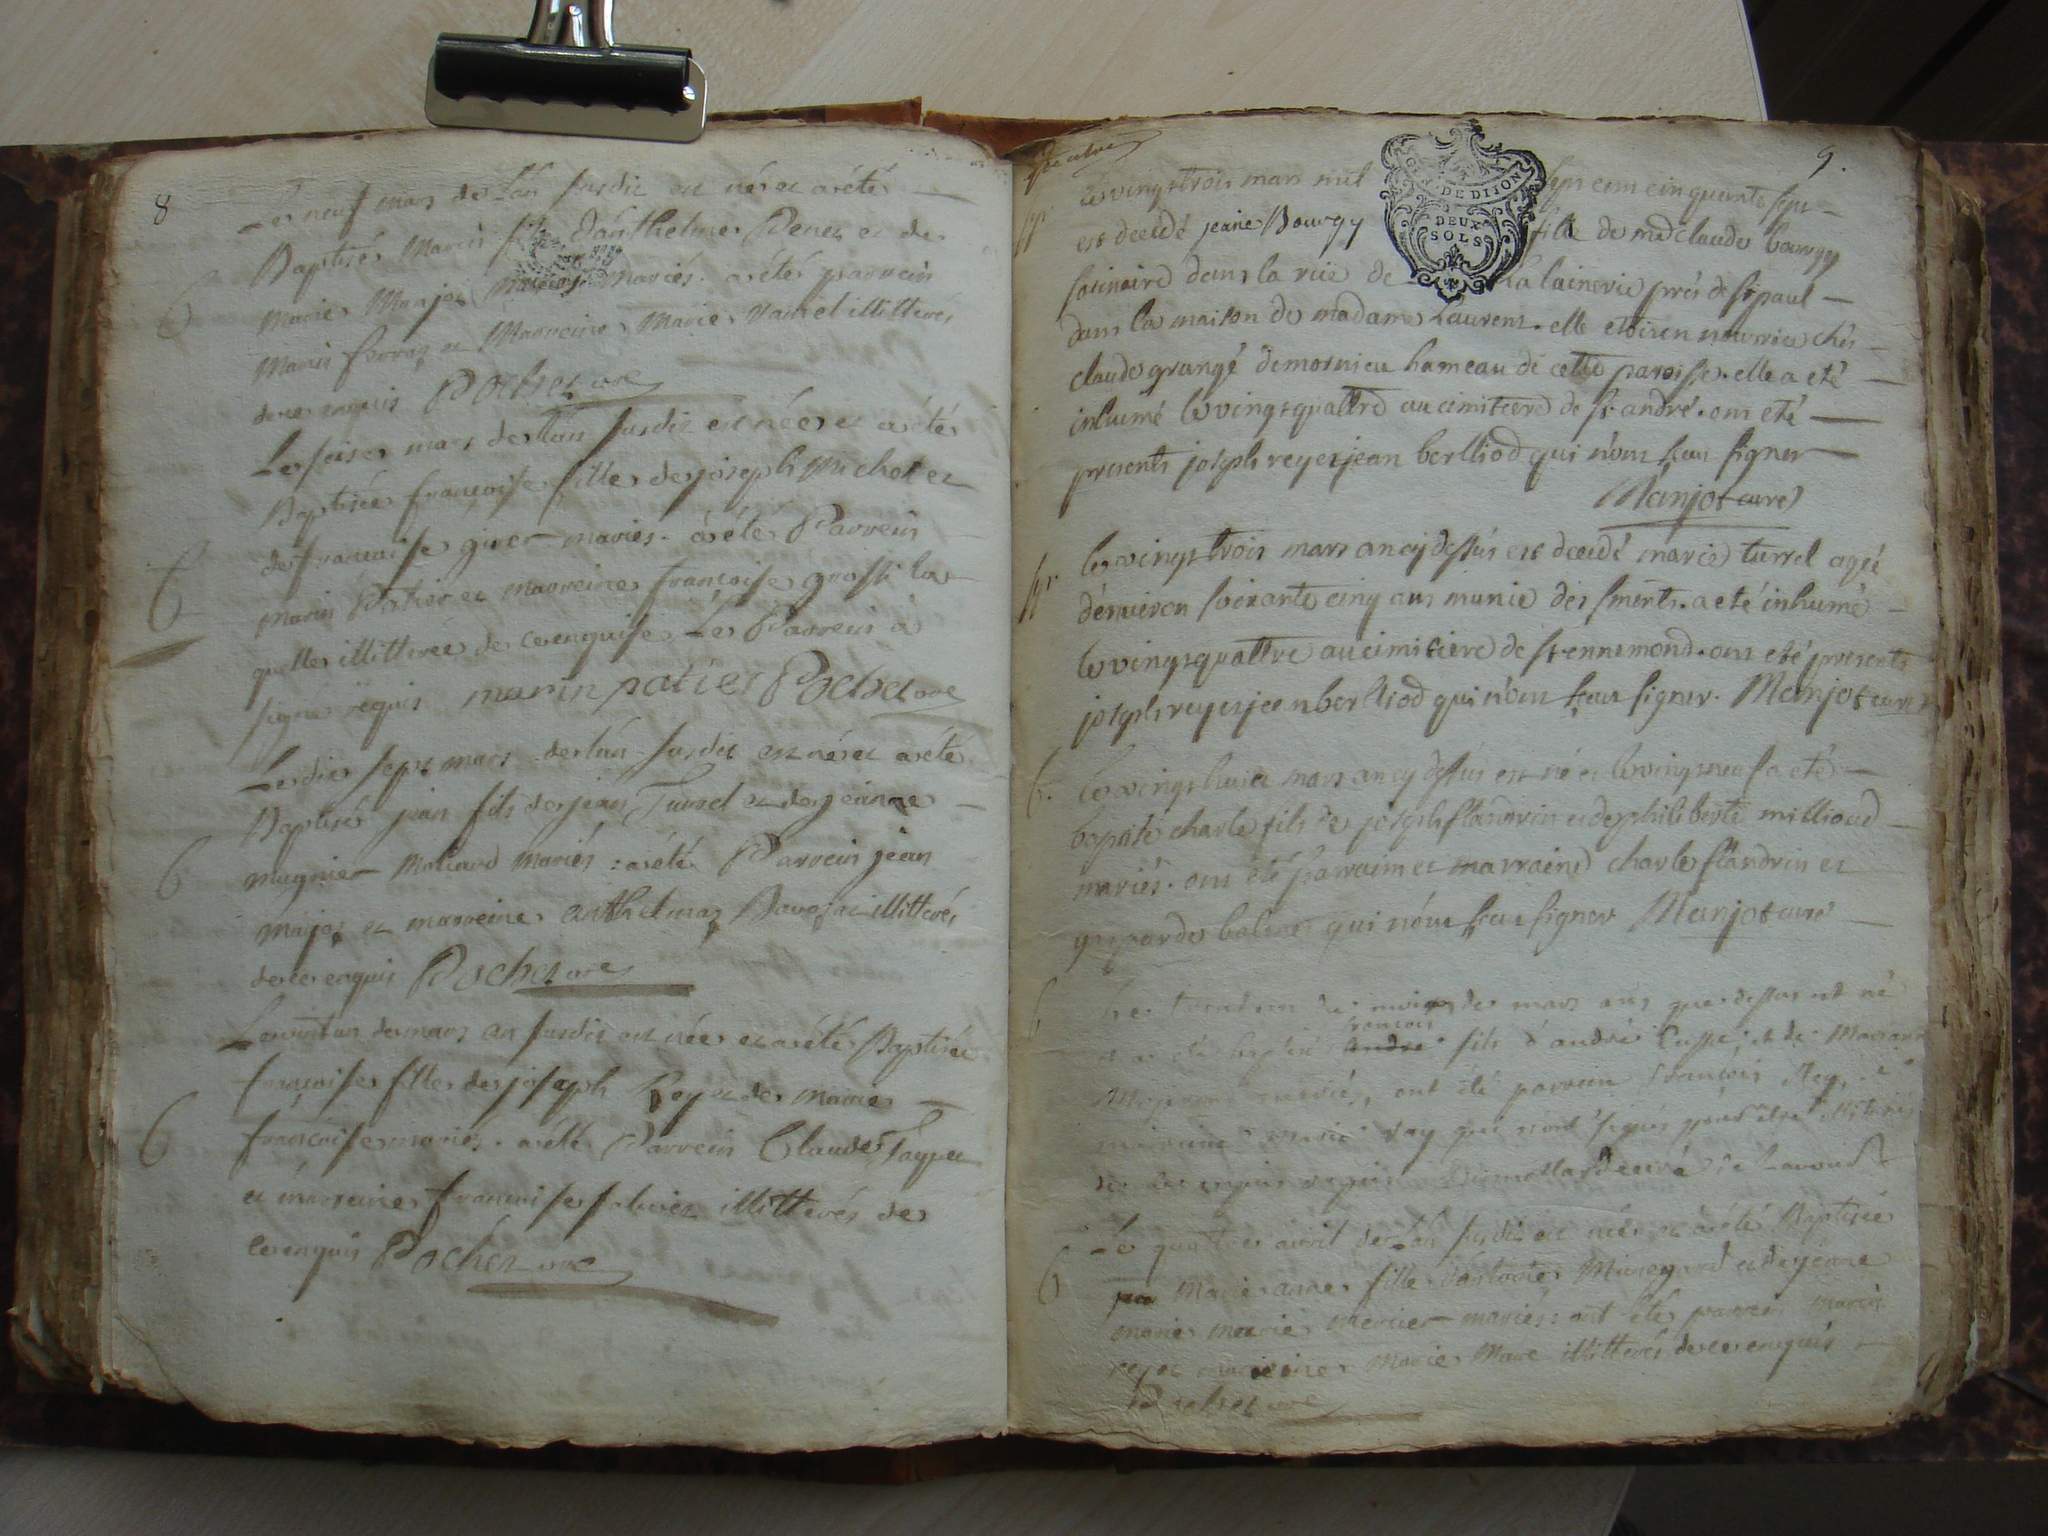 8
Le neuf mars de L'an susdit est né et a été
Baptisé Marin fils d'anthelme Venet et de
Marie Marjot mariés. a été parrein
Marin ferroz et Marreine Marie varret illitterés
de ce enquis Pochet curé
Le seise mars de l'an susdit est née et a été
Baptisée françoise fille de joseph Michot et
de francoise giret mariés. a été Parrein
marin Patier et marreine françoise grossi la
quelle illitterée de ce enquise Le Parrein a
signé requis marin patier Pochet curé
Le dix sept mars de l'an susdit est né et a été
Baptisé jean fils de jean Turrel et de jeanne
mugnier Moliard mariés : a été Parrein jean
majot et marreine anthelmaz illitterés
de ce enquis Pochet curé
Le vint un de mars an susdit est née et a été Baptisée
françoise fille de joseph Rey et de Marie
françoise mariés. a été Parrein Claude
et marreine francoise illitterés de
ce enquis Pochet curé
G. DE DIJON
DEUX
SOLS
9.
le vingt trois mars mil sept cent cinquante sept
est decedé jeane Bourgy fille de md claude bourgy
dans la rue de La lainerie près de st paul
dans la maison de madame Laurent. elle etoit en nourrice chés
claude grangé de mornieu hameau de cette paroisse. elle a eté
inhumé le vingt quattre au cimitiere de st andré. ont eté
presents joseph reyet jean berlliod qui n'ont sceu signer
Manjot curé
le vingt trois mars an cy dessus est decedé marie turrel agée
d'environ soixante cinq ans munie des sments. a eté inhumé
le vingt quattre au cimitiere de st ennemond. ont eté presents
joseph reyet jean berlliod qui n'ont sceu signer. Manjot curé
le vingt huict mars an cy dessus est né et le vingt neuf a eté
baptisé charle fils de joseph flandrin et de philiberte millioud
mariés. ont été parrain et marraine charle flandrin et
gasparde qui n'ont sceu signer Manjot curé
Le trente un de mois de mars ans que dessus est né
francois
et a été baptisé andré fils d'andré Cusse et de
mariés, ont été parrein françois Rey, et
marreine marie Ray qui n'ont signés pour être illiterés
de ce enquis requis curé de Lavour
Le quattre avril de L'an susdit est née et a été Baptisée
Marie anne fille d'antoine et de jeanne
marie mercier mariés : ont été parrein marin
rey et marreine Marie Mare illitterés de ce enquis
Pochet curé